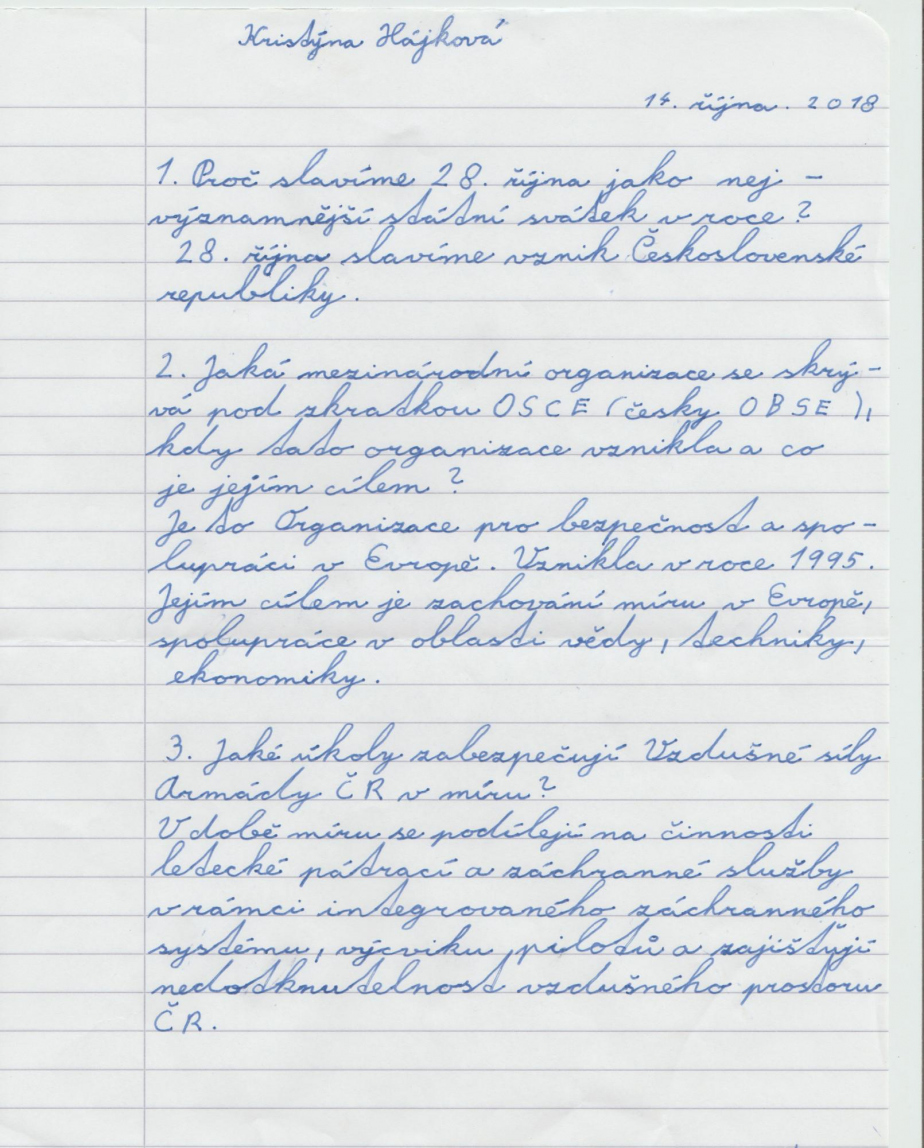 Kristýna Hájková
14. října. 2018
1. Proč slavíme 28. října jako nej -
významnější státní svátek v roce?
28. října slavíme vznik Československé
republiky.
2. Jaká mezinárodní organizace se skrý-
vá pod zkratkou OSCE (česky OBSE),
kdy tato organizace vznikla a co
je jejím cílem?
Je to Organizace pro bezpečnost a spo-
lupráci v Evropě. Vznikla v roce 1995.
Jejím cílem je zachování míru v Evropě,
spolupráce v oblasti vědy, techniky,
ekonomiky.
3. Jaké úkoly zabezpečují Vzdušné síly
Armády ČR v míru?
V době míru se podílejí na činnosti
letecké pátrací a záchranné služby
v rámci integrovaného záchranného
systému, výcviku pilotů a zajišťují
nedotknutelnost vzdušného prostoru
ČR.